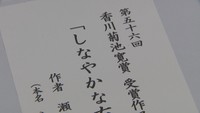 第五十六回
香川菊池寛賞 受賞作
「しなやかな
作者 瀬
(本名